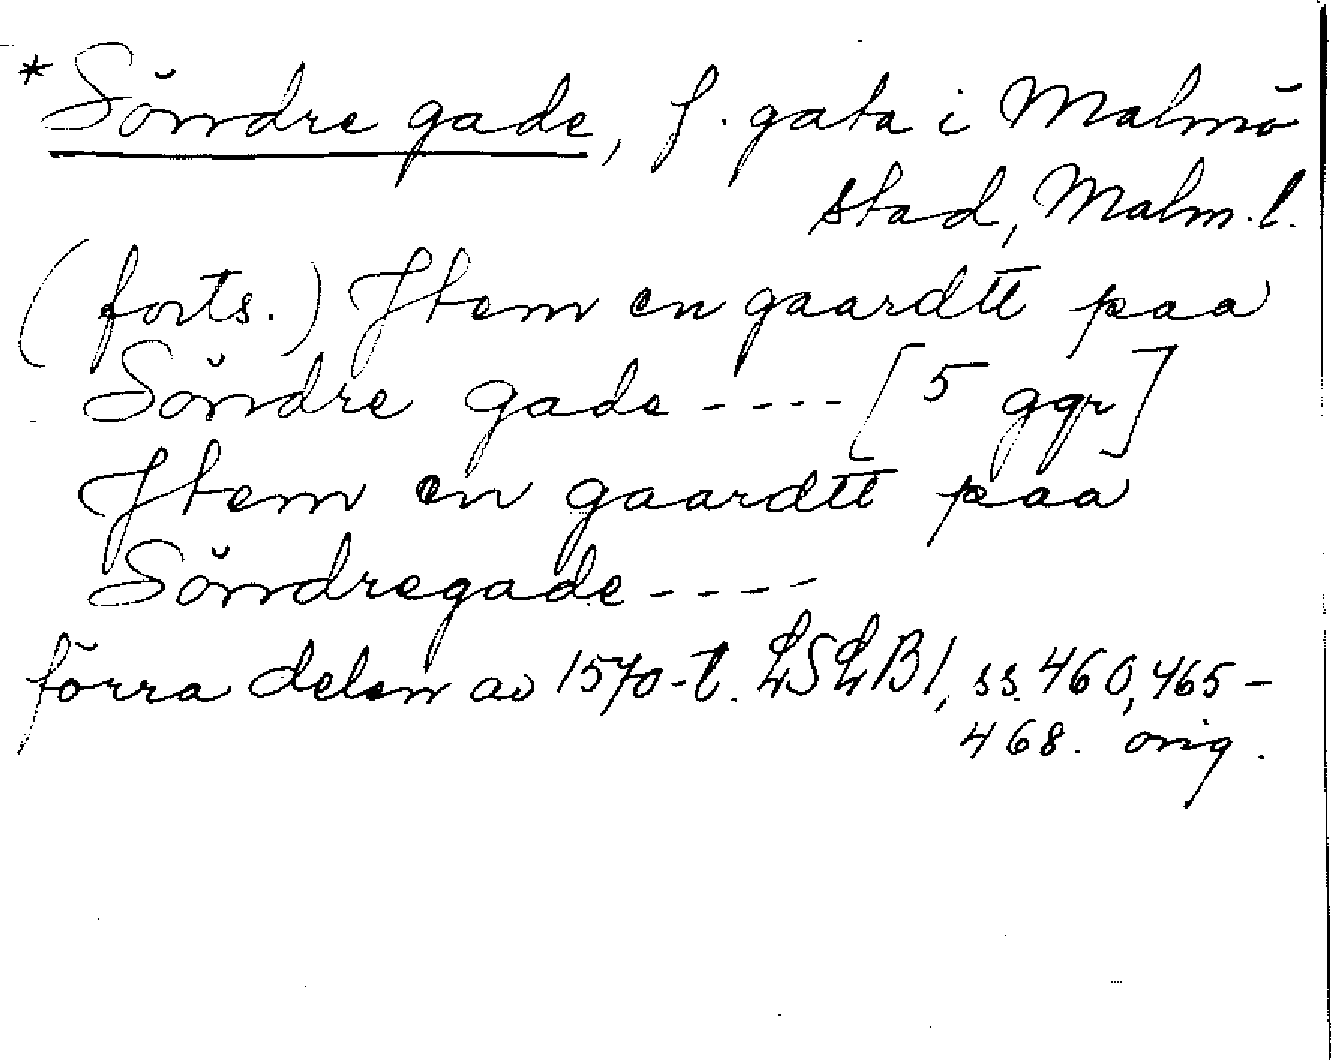 *Söndre gade, f. gata i Malmö
stad, Malm. l.
(forts.) Jtem en gaardtt paa
Söndre gade ---- [5 ggr]
Jtem en gaardtt paa
Söndregade ----
förra delen av 1570-t. LSLB1, ss. 460, 465-
468. orig.